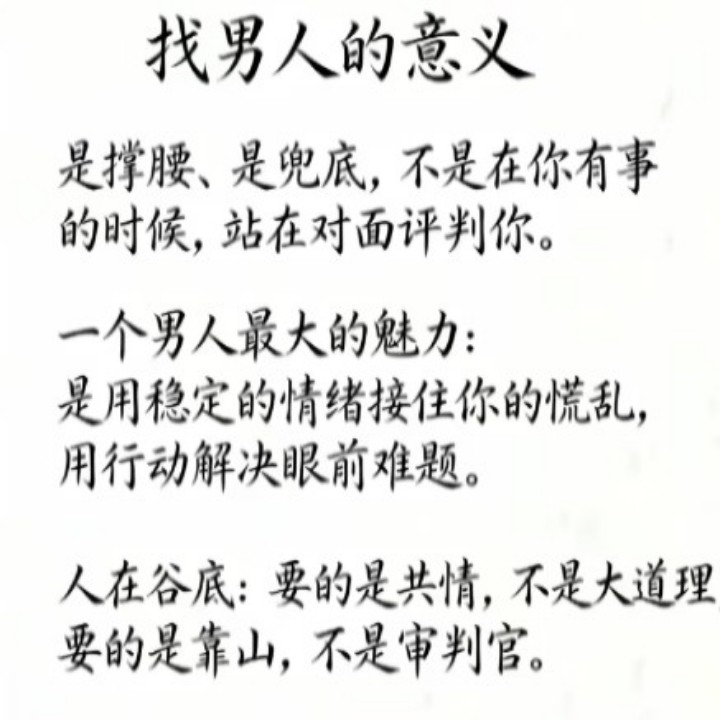 找男人的意义
是撑腰、是兜底，不是在你有事
的时候，站在对面评判你。
一个男人最大的魅力：
是用稳定的情绪接住你的慌乱，
用行动解决眼前难题。
人在谷底：要的是共情，不是大道理，
要的是靠山，不是审判官。